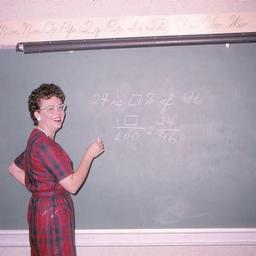 Mm Nn Oo Pp Qq Rr Ss Tt Uu Vv Ww
24 is □% of 96
□/100 = 24/96